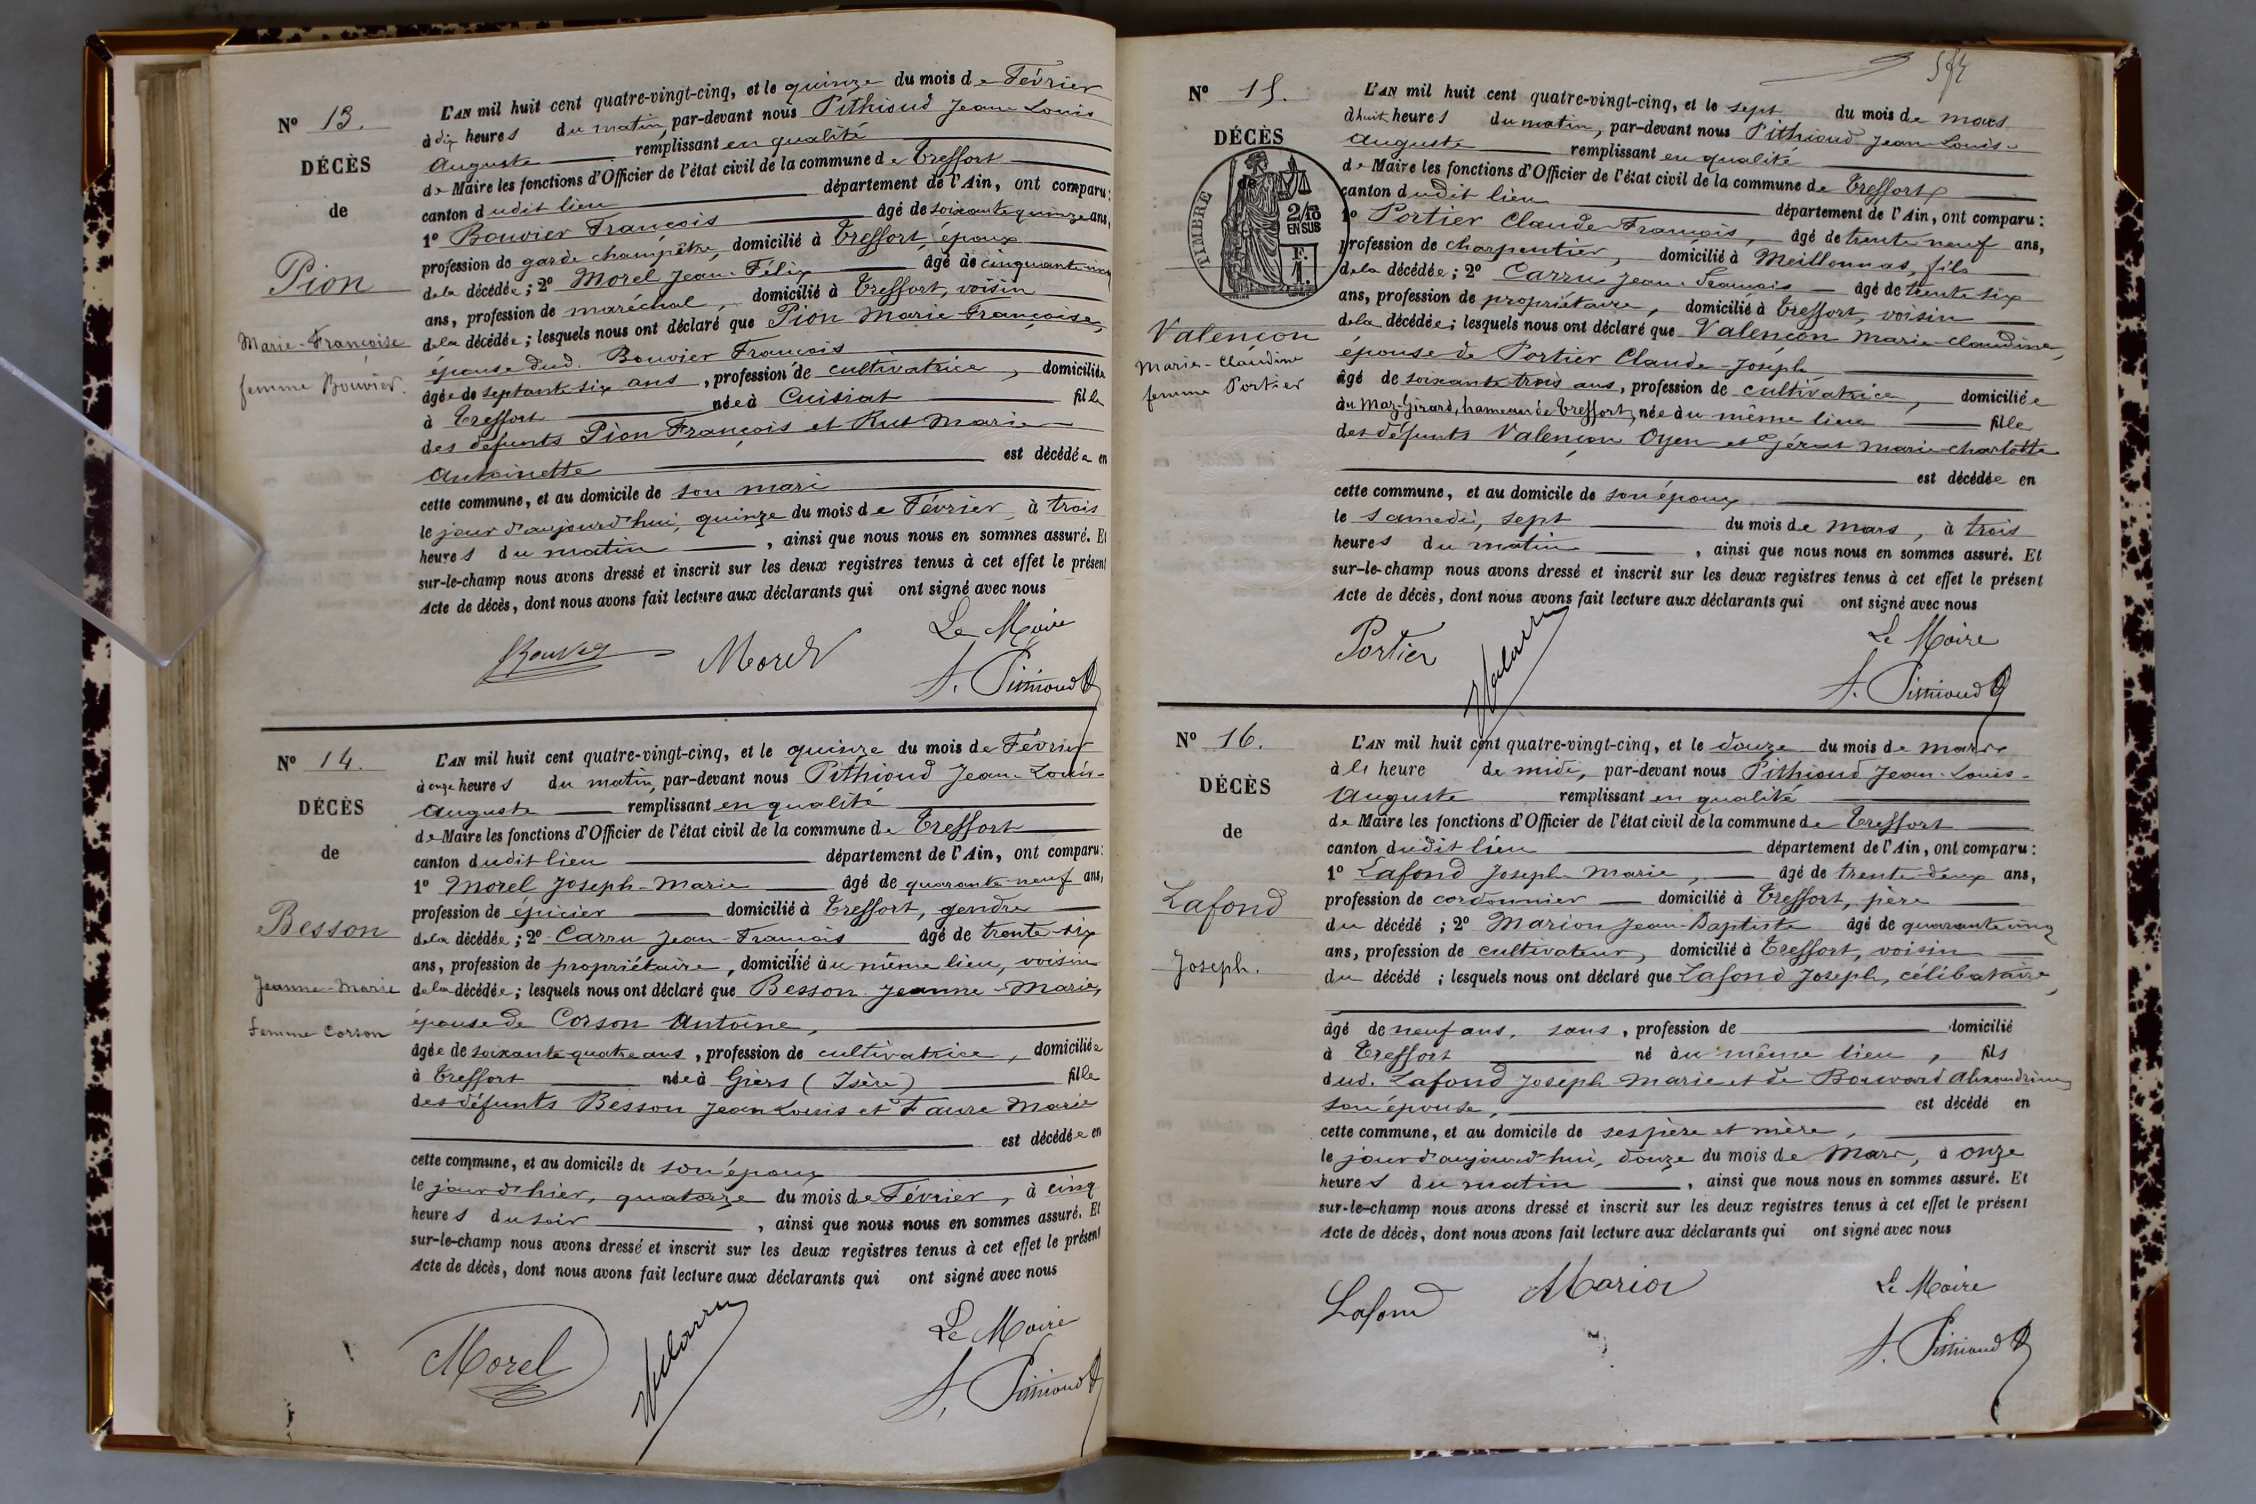 N° 13.
DÉCÈS
de
Pion
Marie-Françoise
femme Bouvier.
L'AN mil huit cent quatre-vingt-cinq, et le quinze du mois de Février
à dix heures du matin, par-devant nous Pithioud Jean-Louis
Auguste remplissant en qualité
de Maire les fonctions d'Officier de l'état civil de la commune de Treffort
canton dudit lieu département de l'Ain, ont comparu:
1° Bouvier François âgé de soixante quinze ans,
profession de garde champêtre, domicilié à Treffort, époux
de la décédée; 2° Morel Jean-Félix âgé de cinquante cinq
ans, profession de maréchal, domicilié à Treffort, voisin
de la décédée; lesquels nous ont déclaré que Pion Marie-Françoise,
épouse dud. Bouvier François
âgée de septante six ans, profession de cultivatrice, domiciliée
à Treffort née à Cuisiat fille
des défunts Pion François et Rut Marie
Antoinette est décédée en
cette commune, et au domicile de son mari
le jour d'aujourd'hui, quinze du mois de Février, à trois
heures du matin, ainsi que nous nous en sommes assuré. Et
sur-le-champ nous avons dressé et inscrit sur les deux registres tenus à cet effet le présent
Acte de décès, dont nous avons fait lecture aux déclarants qui ont signé avec nous
Le Maire
Morel
A. Pithioud
N° 14.
DÉCÈS
de
Besson
Jeanne-Marie
femme Corson
L'AN mil huit cent quatre-vingt-cinq, et le quinze du mois de Février
à onze heures du matin, par-devant nous Pithioud Jean-Louis-
Auguste remplissant en qualité
de Maire les fonctions d'Officier de l'état civil de la commune de Treffort
canton dudit lieu département de l'Ain, ont comparu:
1° Morel Joseph-Marie âgé de quarante-neuf ans,
profession de épicier domicilié à Treffort, gendre
de la décédée; 2° Carru Jean-François âgé de trente-six
ans, profession de propriétaire, domicilié au même lieu, voisin
de la décédée; lesquels nous ont déclaré que Besson Jeanne-Marie,
épouse de Corson Antoine,
âgée de soixante quatre ans, profession de cultivatrice, domiciliée
à Treffort née à Gières (Isère) fille
des défunts Besson Jean Louis et Faure Marie
est décédée en
cette commune, et au domicile de son époux
le jour d'hier, quatorze du mois de Février, à cinq
heures du soir, ainsi que nous nous en sommes assuré. Et
sur-le-champ nous avons dressé et inscrit sur les deux registres tenus à cet effet le présent
Acte de décès, dont nous avons fait lecture aux déclarants qui ont signé avec nous
Le Maire
Morel
A. Pithioud
N° 15.
DÉCÈS
de
TIMBRE
2/10
EN SUS
F.
1.
Valençon
Marie-Claudine
femme Portier
L'AN mil huit cent quatre-vingt-cinq, et le sept du mois de mars
à huit heures du matin, par-devant nous Pithioud Jean-Louis-
Auguste remplissant en qualité
de Maire les fonctions d'Officier de l'état civil de la commune de Treffort
canton dudit lieu département de l'Ain, ont comparu:
1° Portier Claude-François, âgé de trente neuf ans,
profession de charpentier, domicilié à Meillonnas, fils
de la décédée; 2° Carru Jean-François âgé de trente six
ans, profession de propriétaire, domicilié à Treffort, voisin
de la décédée; lesquels nous ont déclaré que Valençon Marie-Claudine,
épouse de Portier Claude-Joseph
âgé de soixante trois ans, profession de cultivatrice, domiciliée
au Maz-Girard, hameau de Treffort, née au même lieu fille
des défunts Valençon Oyen et Marie-Charlotte
est décédée en
cette commune, et au domicile de son époux
le samedi, sept du mois de mars, à trois
heures du matin, ainsi que nous nous en sommes assuré. Et
sur-le-champ nous avons dressé et inscrit sur les deux registres tenus à cet effet le présent
Acte de décès, dont nous avons fait lecture aux déclarants qui ont signé avec nous
Portier
Le Maire
A. Pithioud
N° 16.
DÉCÈS
de
Lafond
Joseph.
L'AN mil huit cent quatre-vingt-cinq, et le douze du mois de mars
à l' heure de midi, par-devant nous Pithioud Jean-Louis-
Auguste remplissant en qualité
de Maire les fonctions d'Officier de l'état civil de la commune de Treffort
canton dudit lieu département de l'Ain, ont comparu:
1° Lafond Joseph Marie, âgé de trente-deux ans,
profession de cordonnier domicilié à Treffort, père
du décédé; 2° Marion Jean-Baptiste âgé de quarante cinq
ans, profession de cultivateur, domicilié à Treffort, voisin
du décédé; lesquels nous ont déclaré que Lafond Joseph, célibataire,
âgé de neuf ans, sans, profession de domicilié
à Treffort né au même lieu, fils
dud. Lafond Joseph Marie et de Bouvard Alexandrine
son épouse, est décédé en
cette commune, et au domicile de ses père et mère,
le jour d'aujourd'hui, douze du mois de Mars, à onze
heures du matin, ainsi que nous nous en sommes assuré. Et
sur-le-champ nous avons dressé et inscrit sur les deux registres tenus à cet effet le présent
Acte de décès, dont nous avons fait lecture aux déclarants qui ont signé avec nous
Lafond
Marion
Le Maire
A. Pithioud